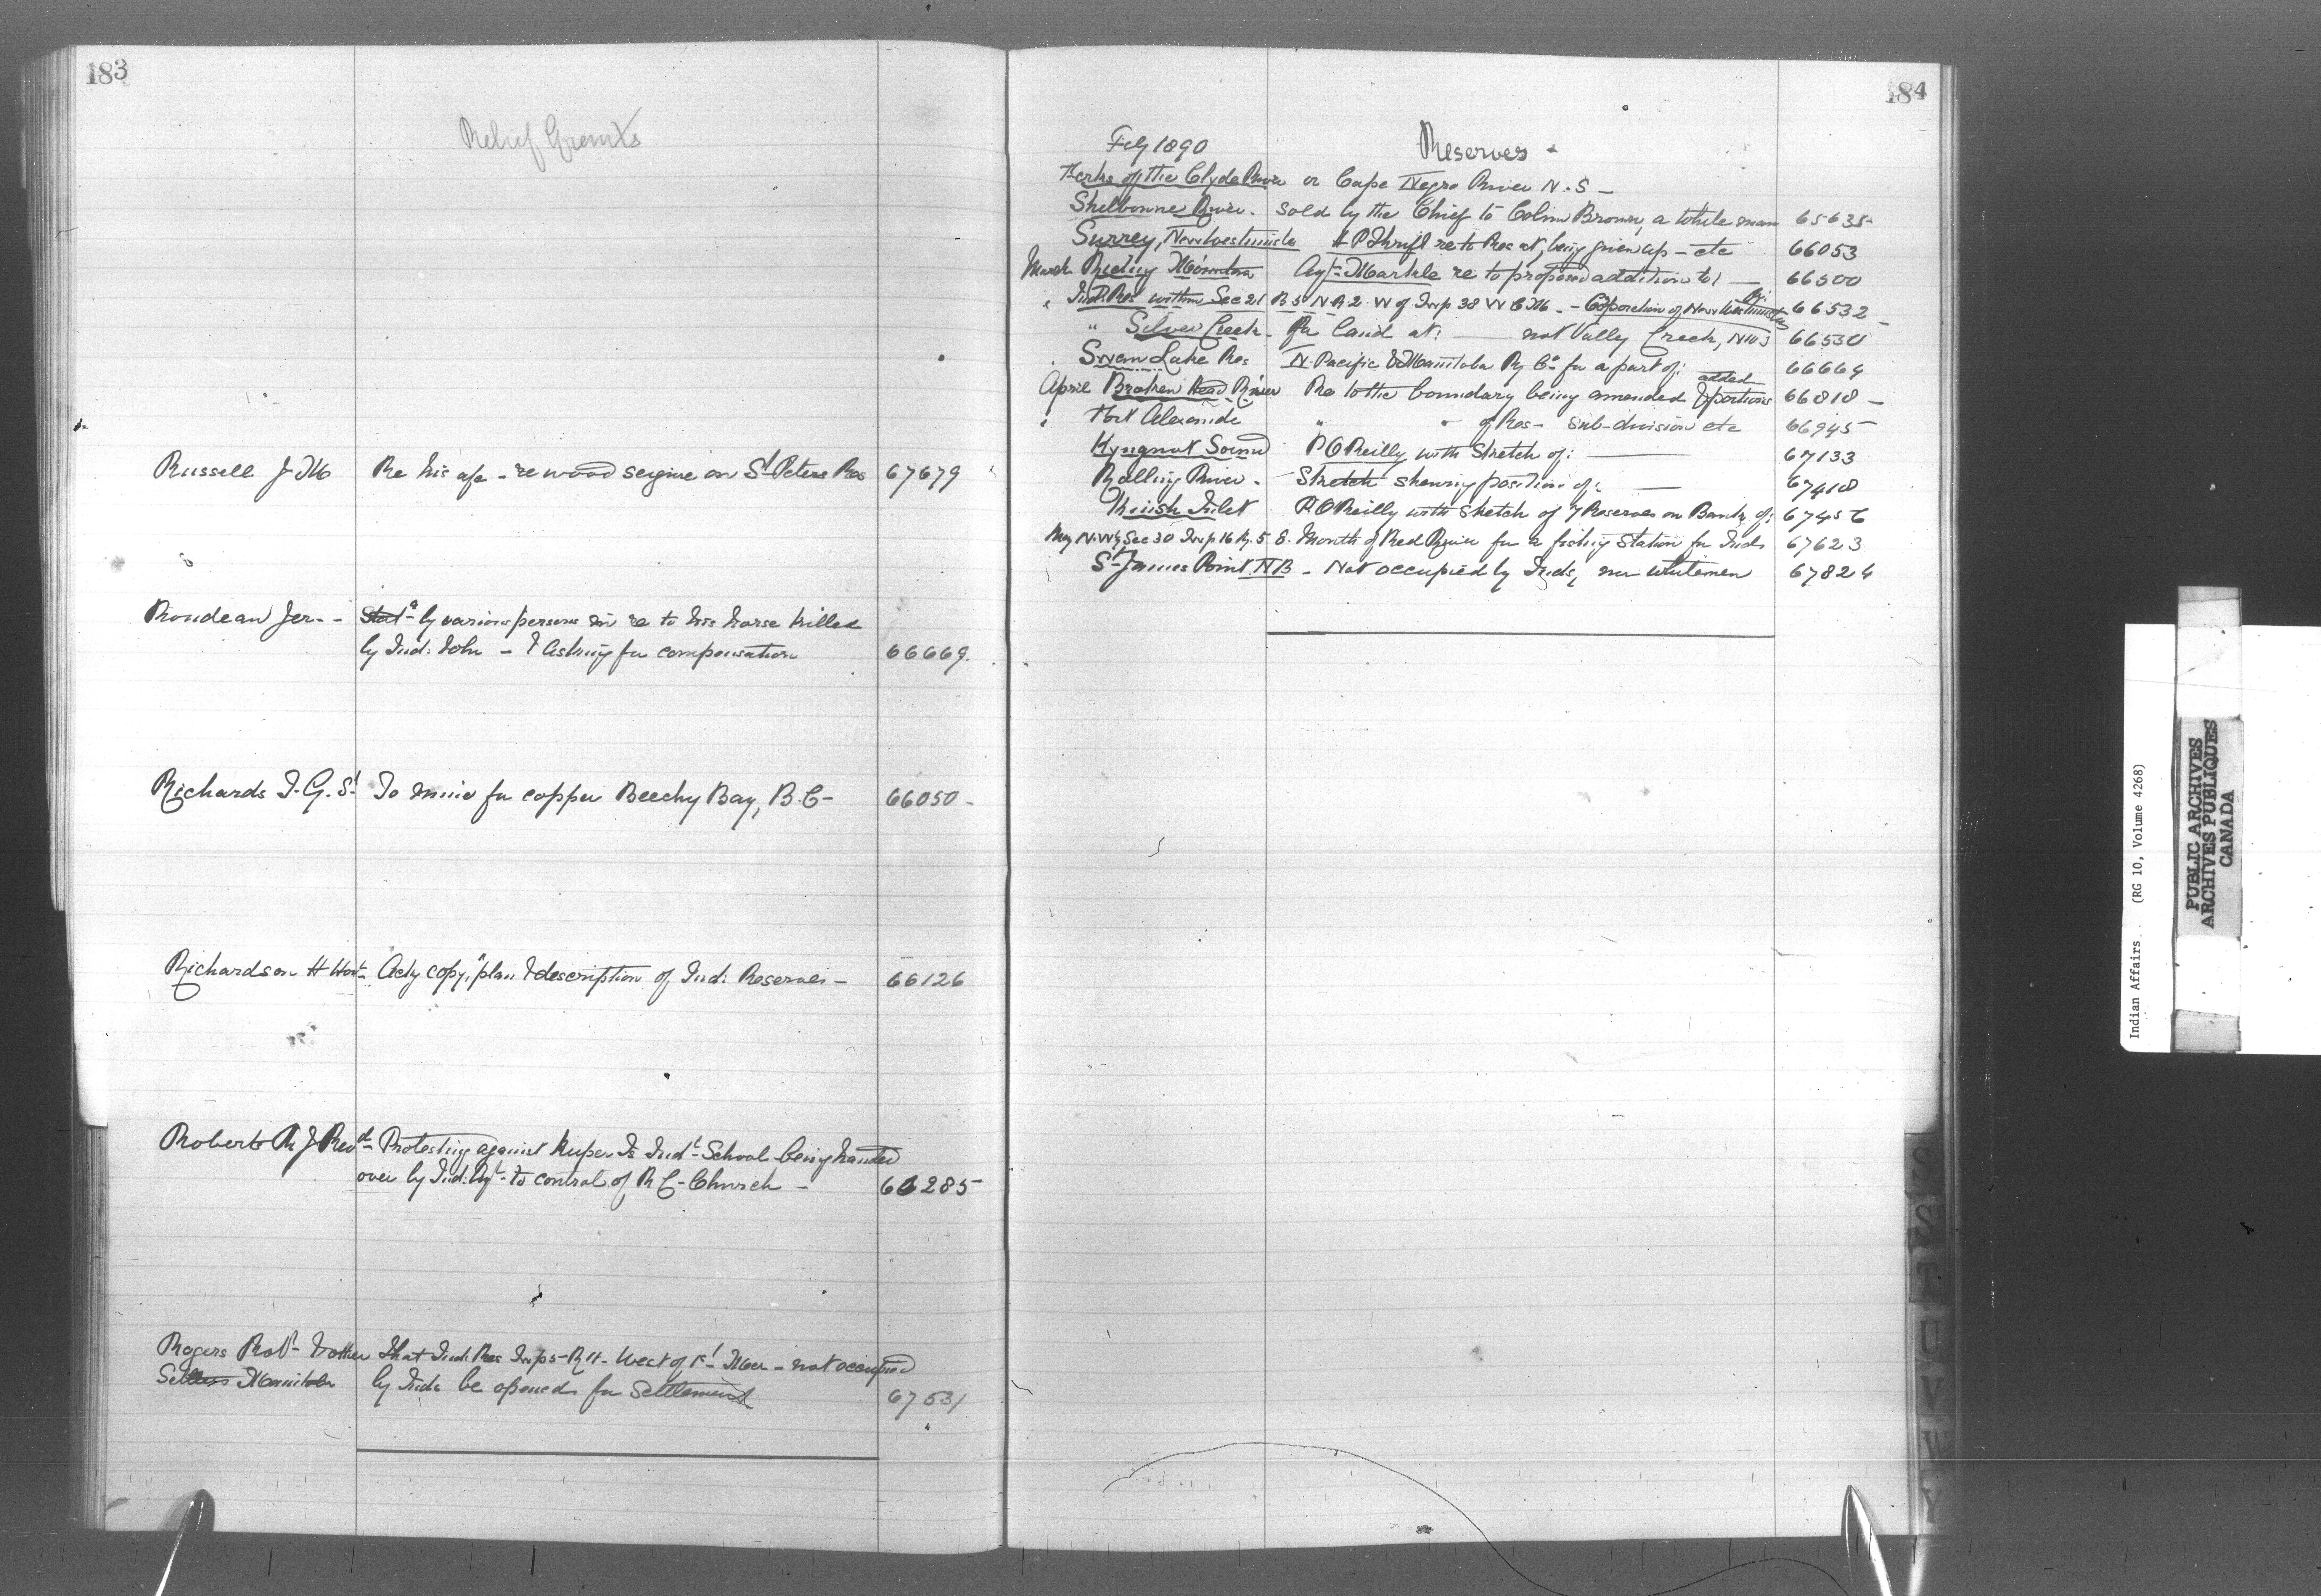 183
Relief Grants
Russell J. M Re his apn - re wood seizure on St Peters Res 67679
Rondeau Jer - Stat by various persons in re to his horse killed
by Ind: John - & asking for compensation 66669.
Richards T. G. St To mine for copper Beechy Bay, B.C - 66050 -
Richardson H Hort Actg copy, plan & description of Ind: Reserves - 66126
Roberts R J Revd - Protesting against Kuper Is Indl School being handed
over by Ind: Agt - to control of R C - Church - 66285
Rogers Robt - & other That Ind: Res Twp 5 - R 11 - West of 1st Mer - not occupied
Settlers Manitoba by Inds be opened for settlement 67531
184
Feby 1890 Reserves -
Forks of the Clyde River or Cape Negro River N.S -
Shelbourne River. sold by the Chief to Colin Brown, a White man 65635
Surrey, New Westminster H P Thrift re to Res at, being given up - etc 66053
March Riding Mountain Agt - Markle re to proposed addition to! 66500
" Ind: Res within Sec 21 B 5 N R 2 W of Twp 38 W C M. - Corporation of New Westminster for: 66532
" Silver Creek - Re land at: not Vally Creek, NW 3 66530
Swan Lake Res N. Pacific & Manitoba Ry Co for a part of: 66664
April Broken Head River Re to the boundary being amended & portions added 66818 -
" Fort Alexander " " of Res - Sub-division etc 66945
Kyngnut Sound P O Reilly with Sketch of: 67133
Rolling River - Sketch shewing position of: 67418
Inlet P. O Reilly with Sketch of 7 Reserves on Banks of: 67456
May N.W¼ Sec 30 Twp 16 R. 5 E. Mouth of Red River for a fishing Station for Inds 67623
St James Point N B - Not occupied by Inds, nor Whitemen 67824
S
S
T
U
V
W
Y
Indian Affairs. (RG 10, Volume 4268)
PUBLIC ARCHIVES
ARCHIVES PUBLIQUES
CANADA